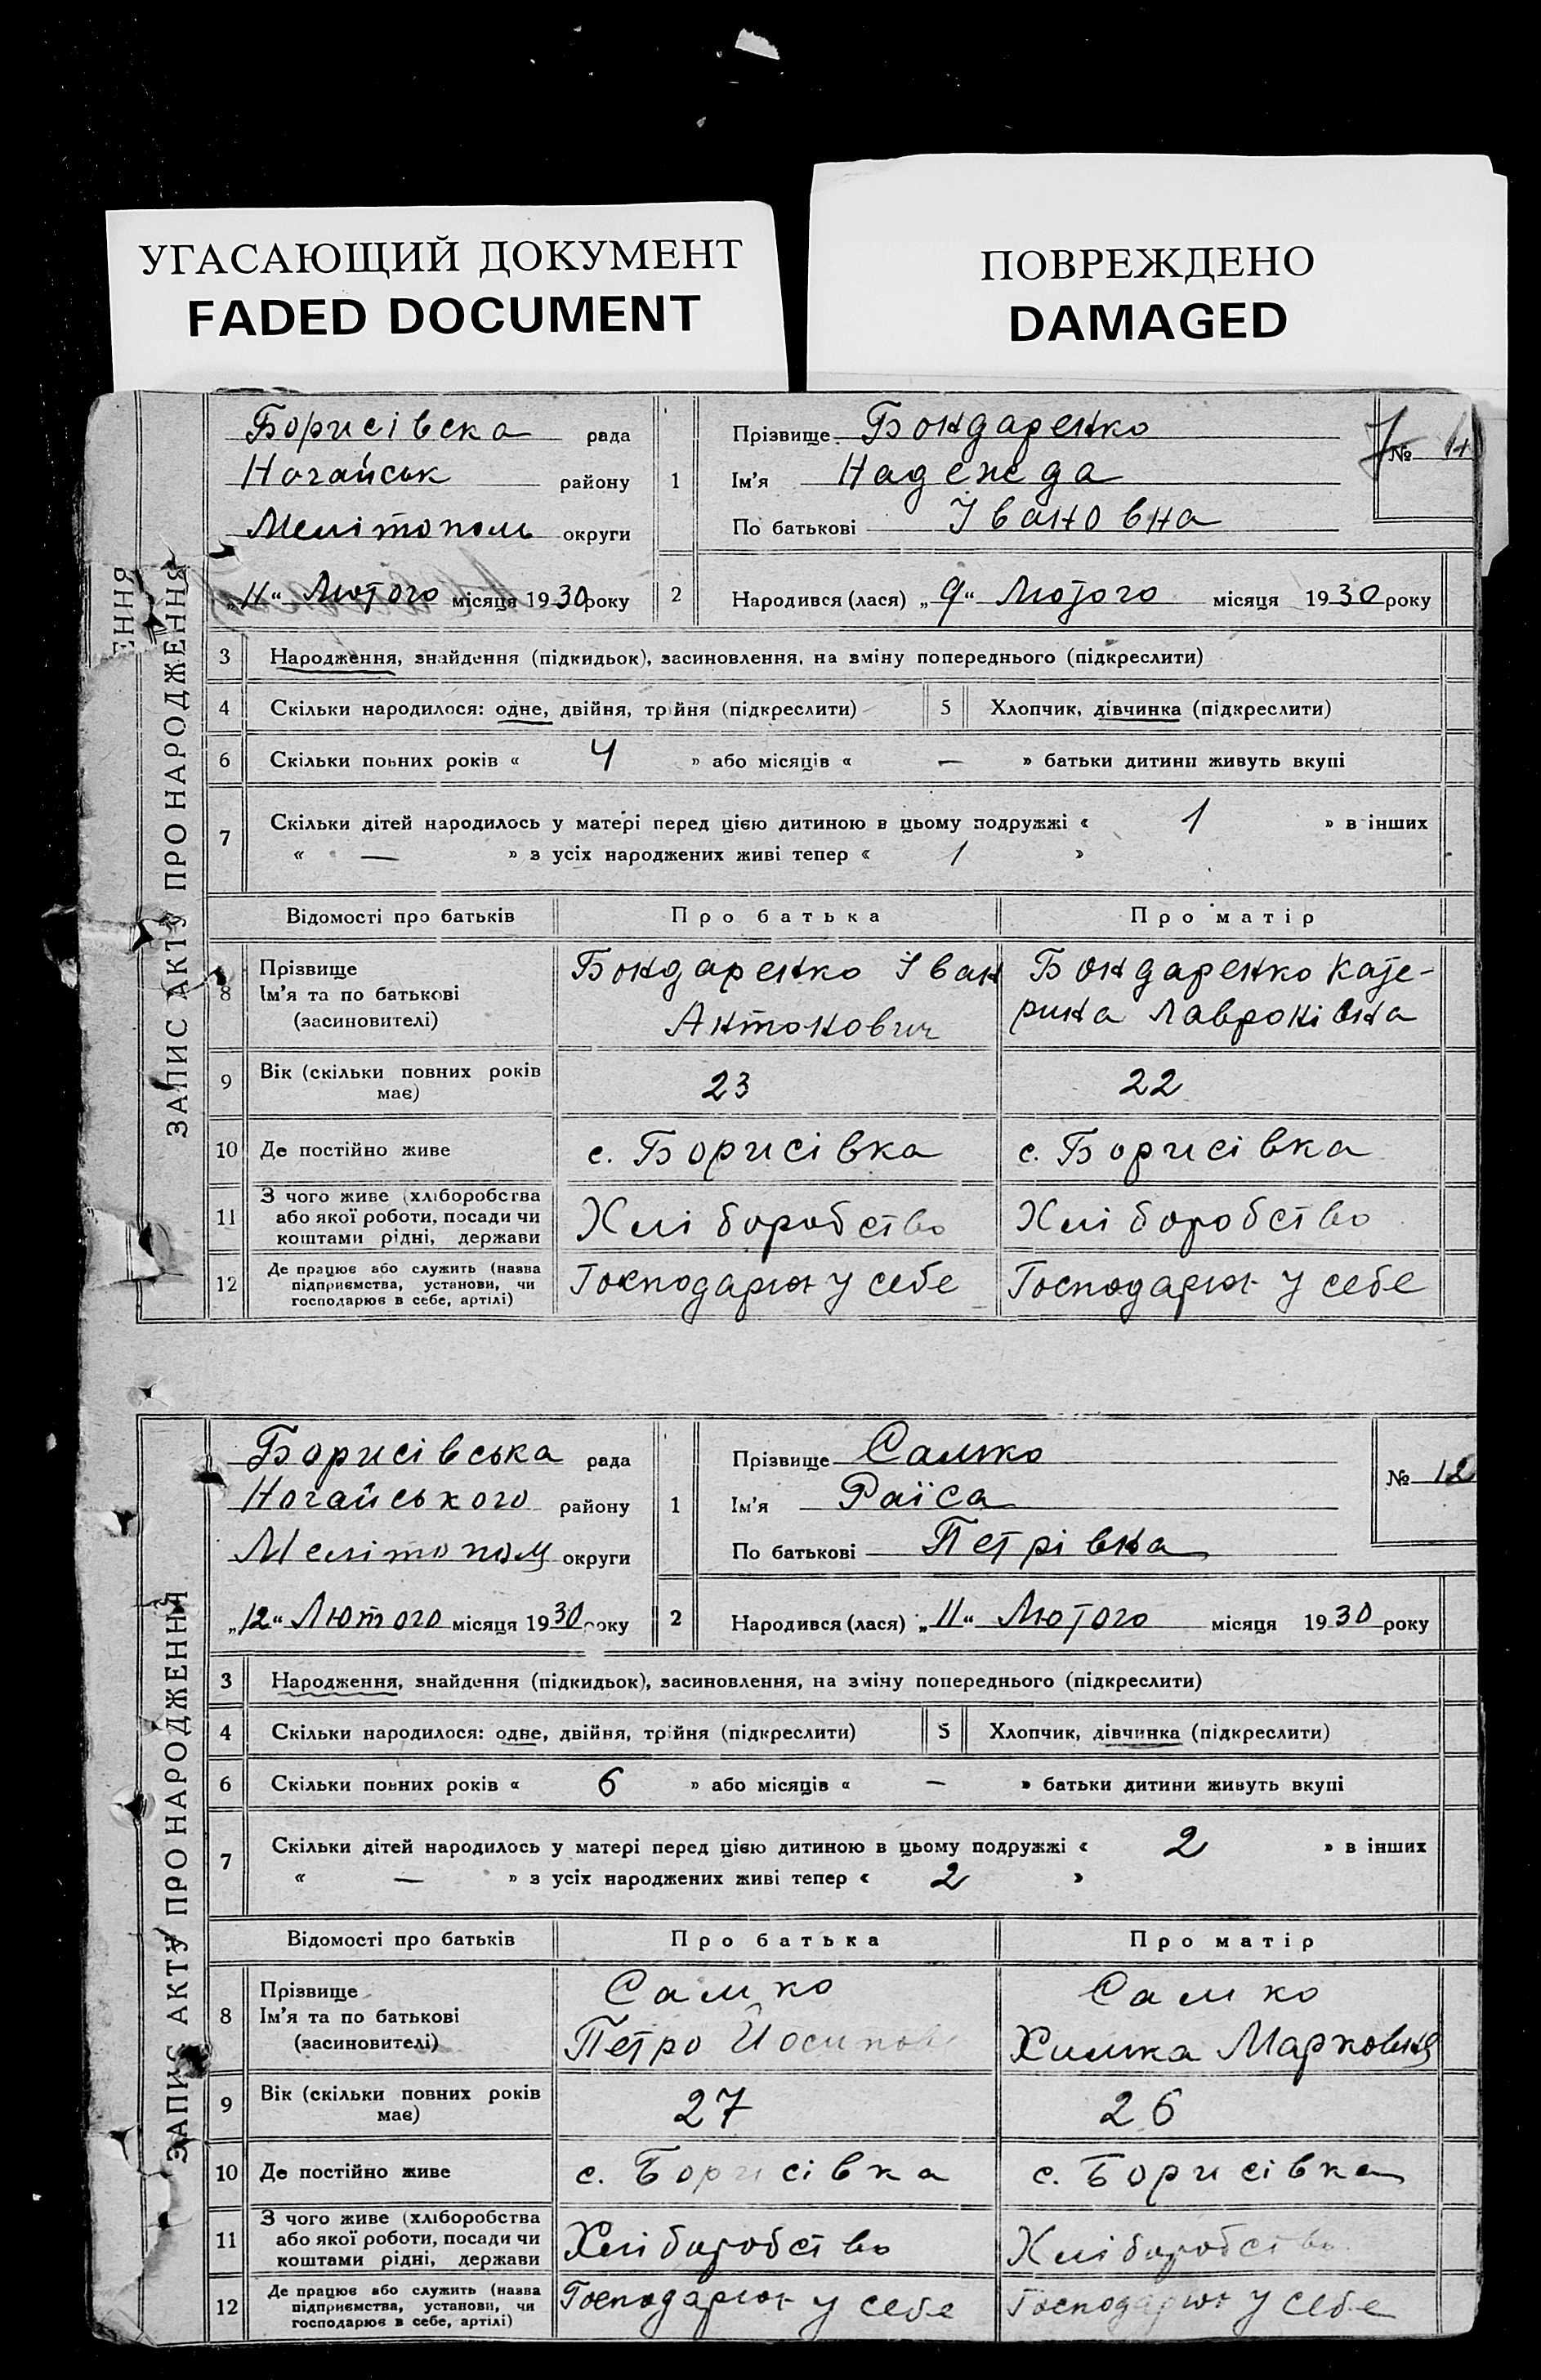 УГАСАЮЩИЙ ДОКУМЕНТ
FADED DOCUMENT
ПОВРЕЖДЕНО
DAMAGED
ЕННЯ
ЗАПИС АКТУ ПРО НАРОДЖЕННЯ
Борисівска рада
Ногайськ району
Мелітополь округи
„11“ Лютого місяця 1930 року
1 Прізвище Бондаренко
Ім'я Надежда
По батькові Івановна
№
2 Народився (лася) „9“ Лютого місяця 1930 року
3 Народження, знайдення (підкидьок), засиновлення, на зміну попереднього (підкреслити)
4 Скільки народилося: одне, двійня, трійня (підкреслити) 5 Хлопчик, дівчинка (підкреслити)
6 Скільки повних років « 4 » або місяців « — » батьки дитини живуть вкупі
7 Скільки дітей народилось у матері перед цією дитиною в цьому подружжі « 1 » в інших
« — » з усіх народжених живі тепер « 1 »
Відомості про батьків Про батька Про матір
8 Прізвище Ім'я та по батькові (засиновителі) Бондаренко Іван Бондаренко Кате-
Антонович рина Лавронівна
9 Вік (скільки повних років має) 23 22
10 Де постійно живе с. Борисівка с. Борисівка
11 З чого живе (хліборобства або якої роботи, посади чи коштами рідні, держави Хліборобство Хліборобство
12 Де працює або служить (назва підприємства, установи, чи господарює в себе, артілі) Господарює у себе Господарює у себе
ЗАПИС АКТУ ПРО НАРОДЖЕННЯ
Борисівська рада
Ногайського району
Мелітополь округи
„12“ Лютого місяця 1930 року
1 Прізвище Самко
Ім'я Раїса
По батькові Петрівна
№ 12
2 Народився (лася) „11“ Лютого місяця 1930 року
3 Народження, знайдення (підкидьок), засиновлення, на зміну попереднього (підкреслити)
4 Скільки народилося: одне, двійня, трійня (підкреслити) 5 Хлопчик, дівчинка (підкреслити)
6 Скільки повних років « 6 » або місяців « — » батьки дитини живуть вкупі
7 Скільки дітей народилось у матері перед цією дитиною в цьому подружжі « 2 » в інших
« — » з усіх народжених живі тепер « 2 »
Відомості про батьків Про батька Про матір
8 Прізвище Ім'я та по батькові (засиновителі) Самко Самко
Петро Йосипов Химка Марковна
9 Вік (скільки повних років має) 27 26
10 Де постійно живе с. Борисівка с. Борисівка
11 З чого живе (хліборобства або якої роботи, посади чи коштами рідні, держави Хліборобство Хліборобство
12 Де працює або служить (назва підприємства, установи, чи господарює в себе, артілі) Господарює у себе Господарює у себе